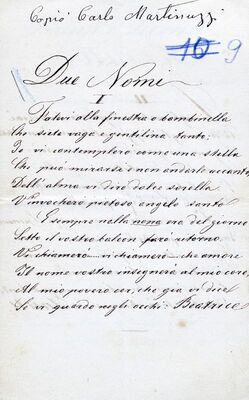 Copiò Carlo Martinuzzi
10 9
Due Nomi
I
Fatevi alla finestra o bambinella
Che siete vaga e gentilina tanto;
Io vi contemplerò come una stella
Che può mirarsi e non andarle accanto,
Dell'alma vi dirò dolce sorella
V'invocherò pietoso angelo santo
E sempre nella nona ora del giorno
Sotto il vostro balcon farò ritorno.
Vi chiamerò vi chiamerò che amore
Il nome vostro insegnerà al mio core,
Al mio povero cor, che già vi dice
Se vi guardo negli occhi: Beatrice